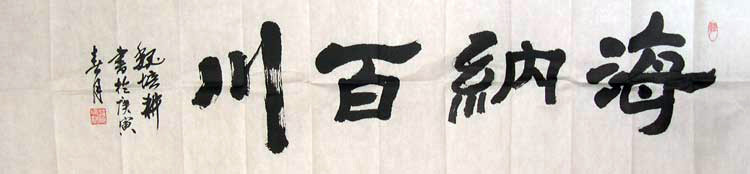 海納百川
魏培耕
書於庚寅
春月